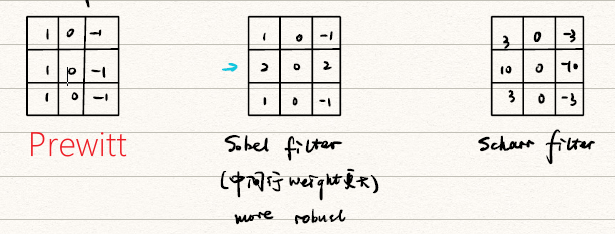 1 0 -1
1 0 -1
1 0 -1
Prewitt
1 0 -1
→ 2 0 2
1 0 -1
Sobel filter
(中间行weight更大)
more robust
3 0 -3
10 0 -10
3 0 -3
Scharr filter